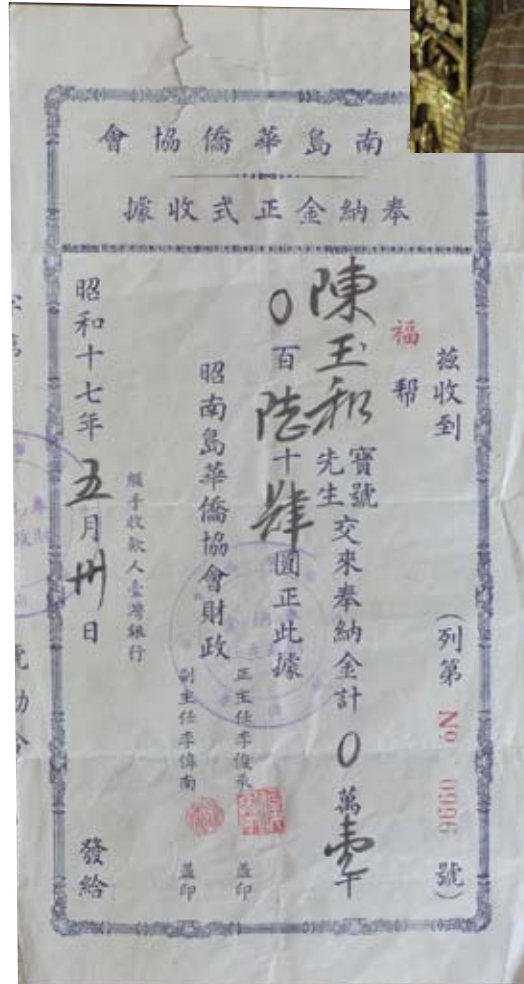 南島華僑協會
奉納金正式收據
茲收到
(列第 No 0996 號)
福帮
陳玉和 寶號先生交來奉納金計0萬壹千
0百陸十肆圓正此據
昭南島華僑協會財政
正主任李俊承 蓋印
副主任李偉南 蓋印
經手收款人臺灣銀行
昭和十七年五月卅日
發給